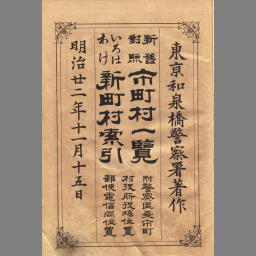 東京和泉橋警察署著作
新舊
對照
市町村一覽
附警察區画市町
村役所役場位置
郵便電信局位置
いろは
わけ
新町村索引
明治廿二年十一月十五日